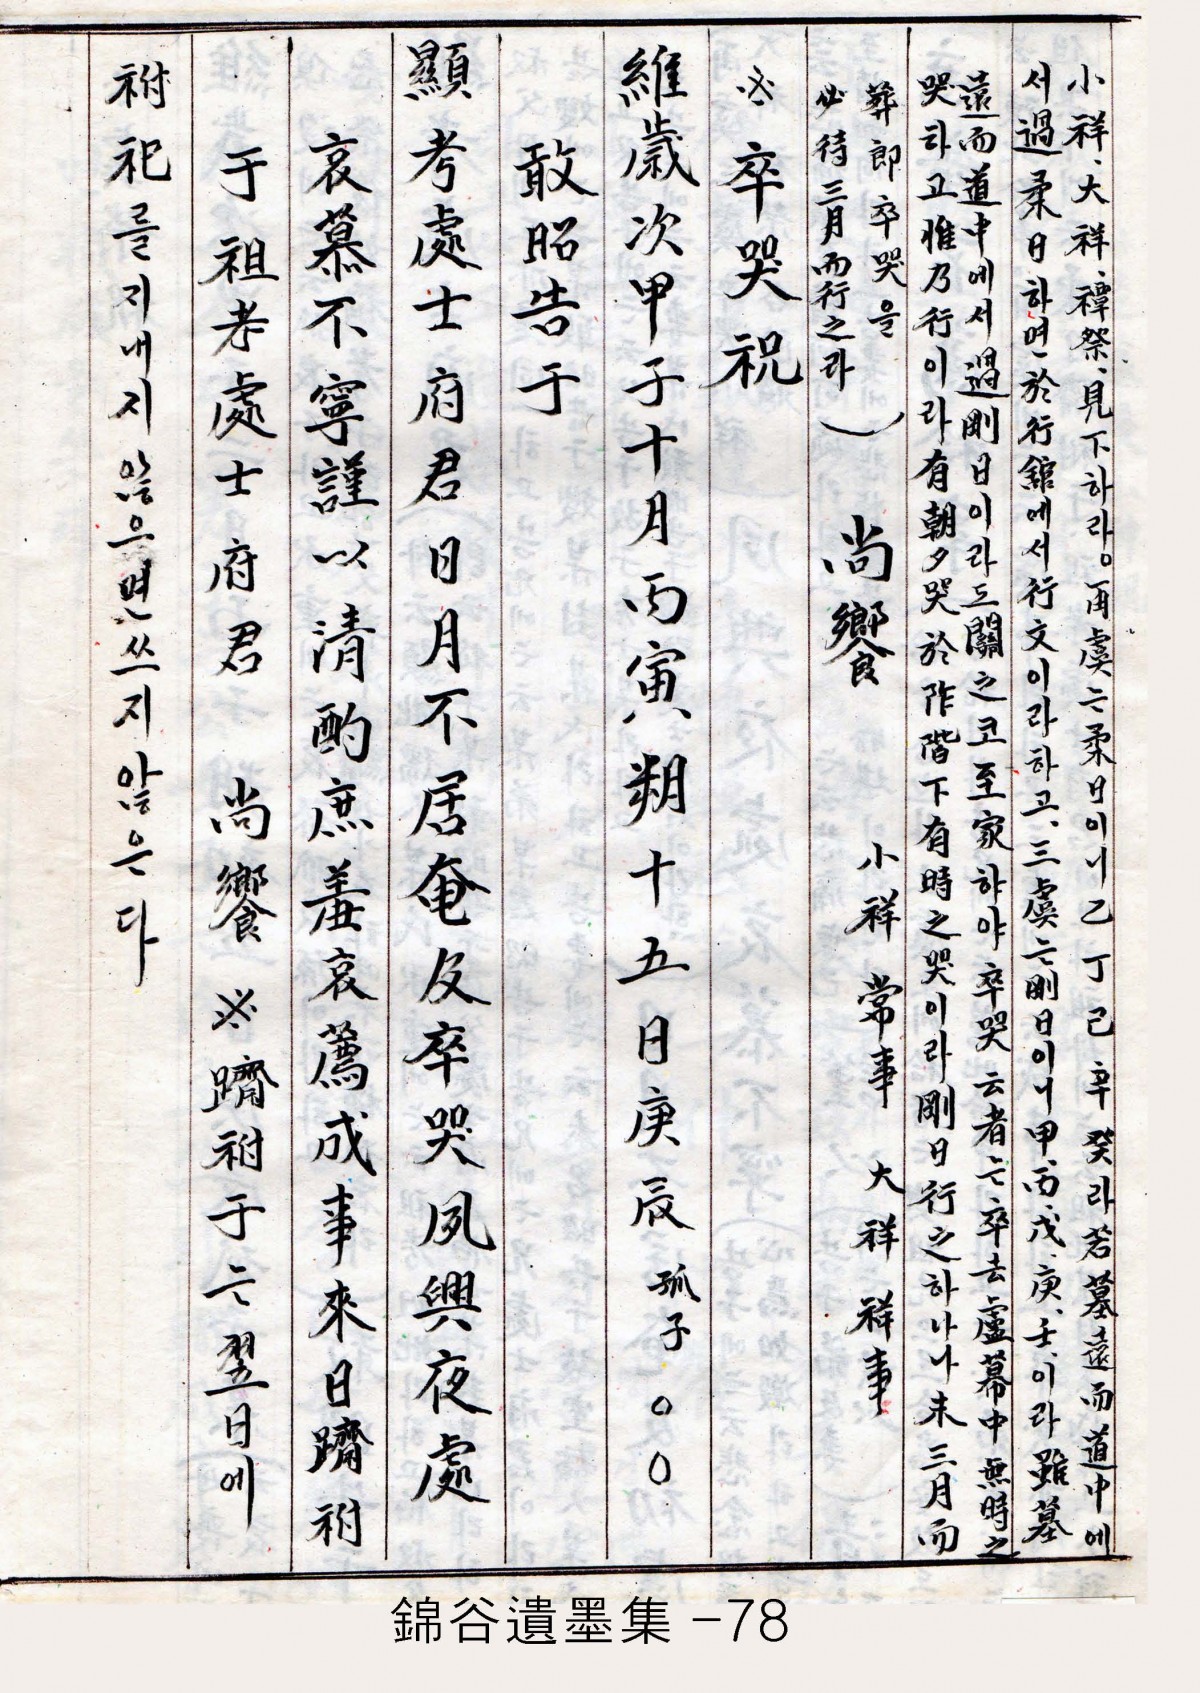 小祥、大祥、禫祭、見下하라。再虞는柔日이니乙丁己辛癸라若墓遠而道中에
서過柔日하면於行舘에서行文이라하고、三虞는剛日이니甲、丙、戊、庚、壬、이라雖墓
遠而道中에서過剛日이라도闕之코至家하야卒哭云者는卒去盧幕中無時之
哭하고惟乃行이라有朝夕哭於阼階下有時之哭이라剛日行之하나나未三月而
葬郎卒哭을 小祥 常事 大祥 祥事
必待三月而行之라) 尚饗
※卒哭祝
維歲次甲子十月丙寅朔十五日庚辰孤子○○
敢昭告于
顯考處士府君日月不居奄及卒哭夙興夜處
哀慕不寧謹以清酌庶羞哀薦成事來日躋祔
于祖考處士府君 尚饗 ※躋祔于는翌日에
祔祀를지내지않으면쓰지않은다
錦谷遺墨集 -78